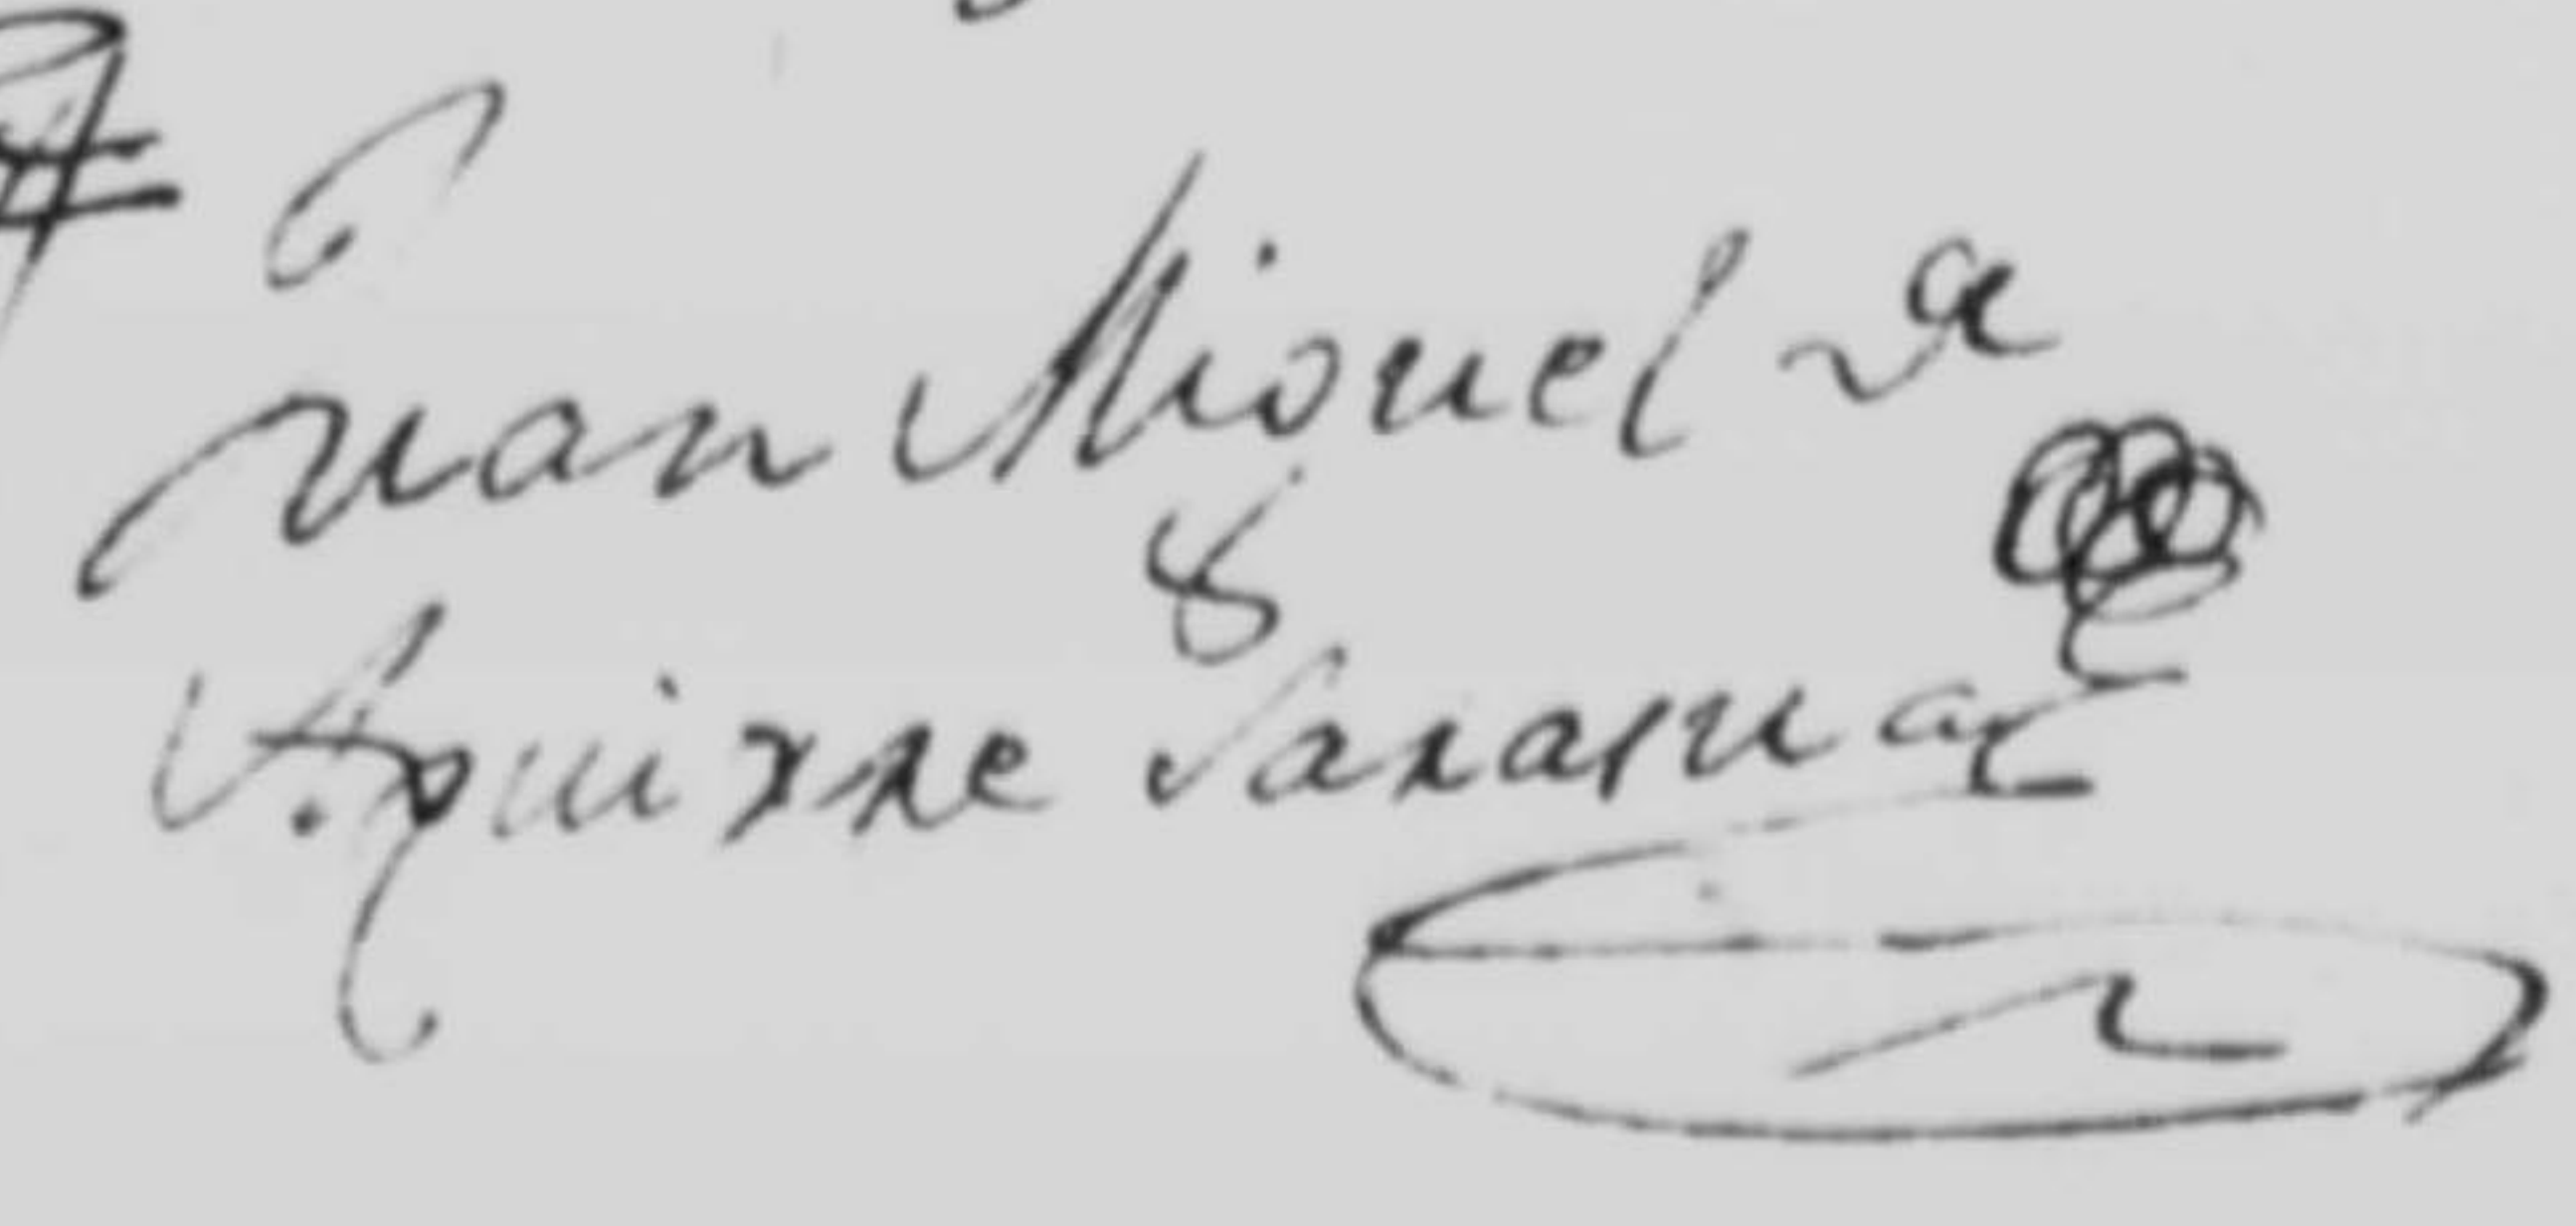 Juan Miguel de
Aguirre Saxasua